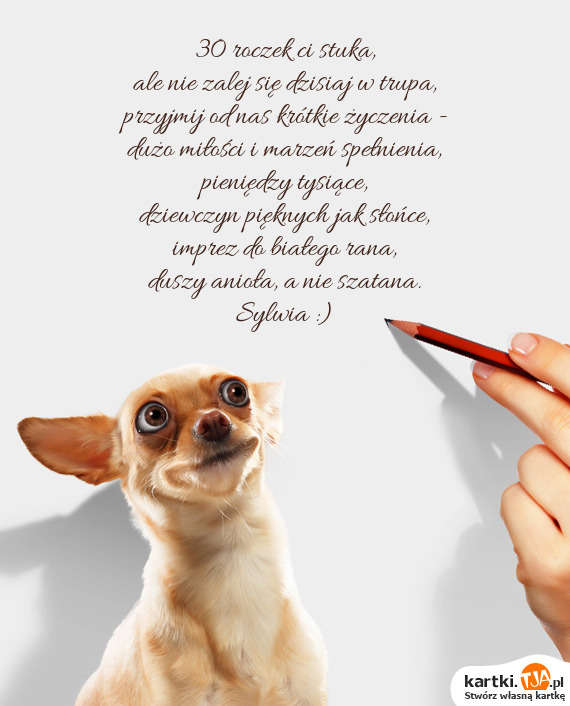 30 roczek ci stuka,
ale nie zalej się dzisiaj w trupa,
przyjmij od nas krótkie życzenia -
dużo miłości i marzeń spełnienia,
pieniędzy tysiące,
dziewczyn pięknych jak słońce,
imprez do białego rana,
duszy anioła, a nie szatana.
Sylwia :)
kartki.TJA.pl
Stwórz własną kartkę